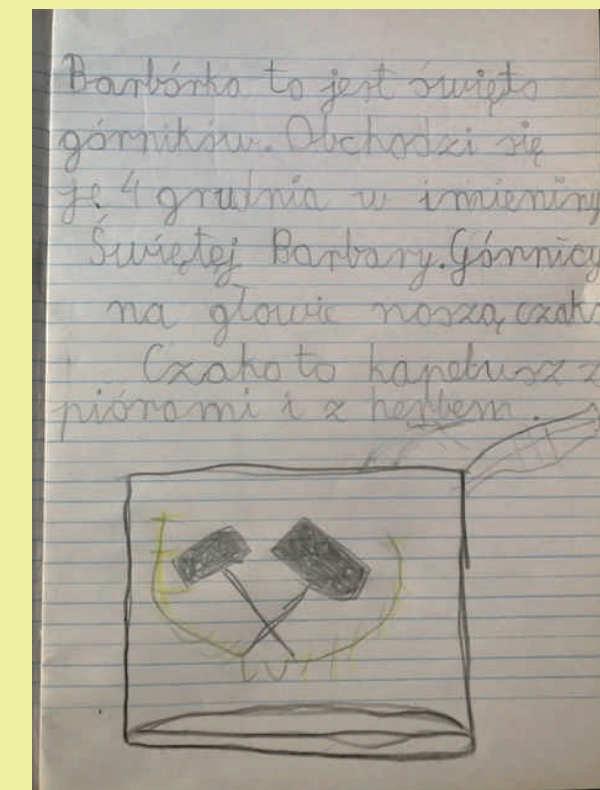 Barbórka to jest święto
górników. Obchodzi się
je 4 grudnia w imieniny
Świętej Barbary. Górnicy
na głowie noszą czako
Czako to kapelusz z
piórami i z herbem.